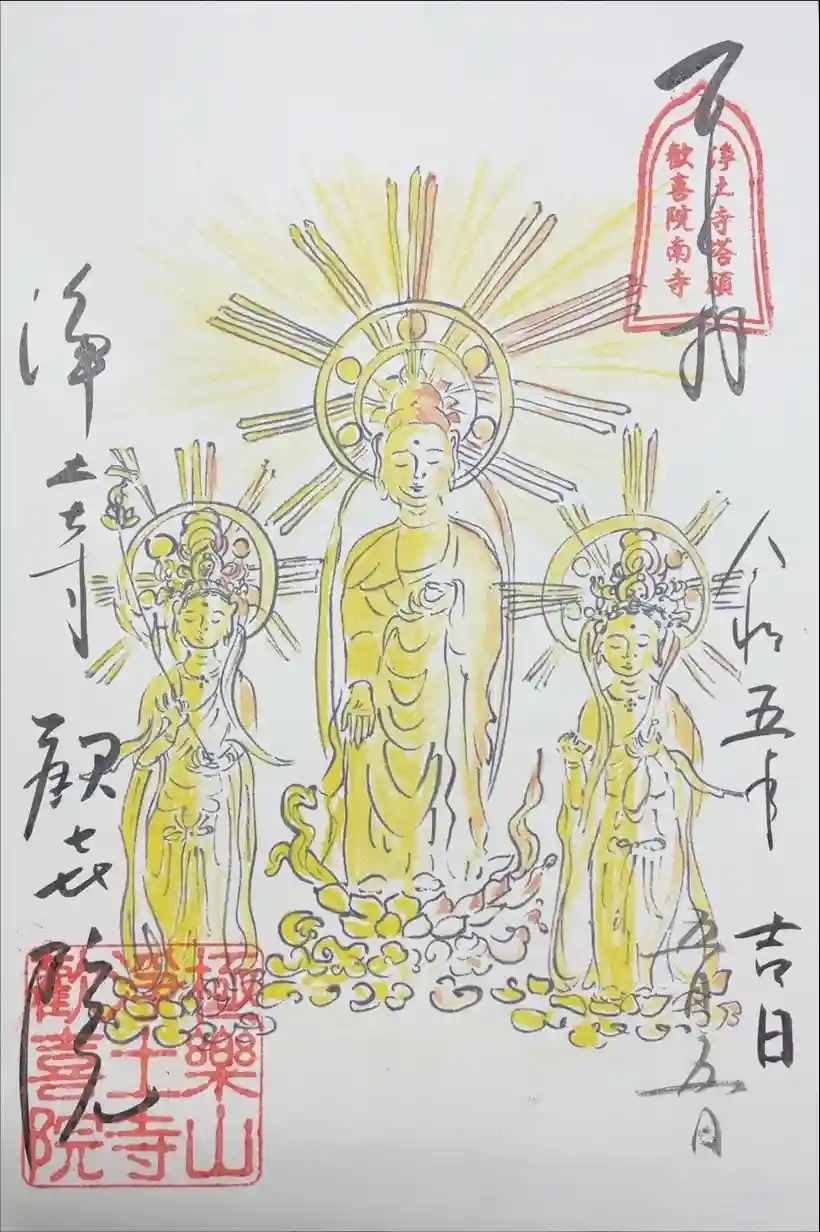 奉拝
浄土寺塔頭
歓喜院南寺
令和五年 吉日
五月五日
浄土寺 歓喜院
極樂山
淨土寺
歡喜院